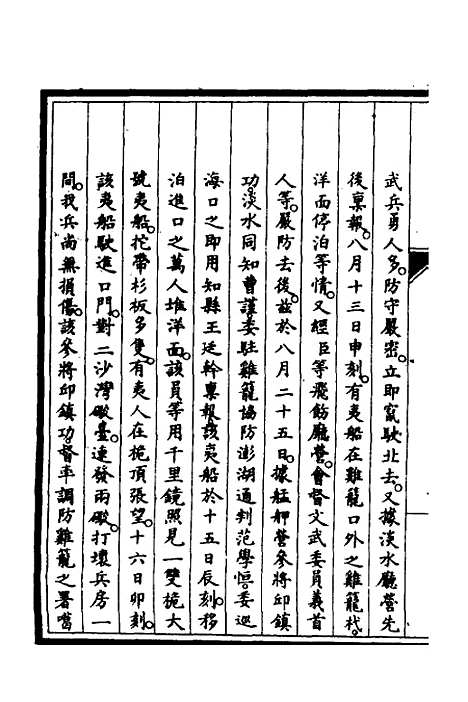 武兵勇人多。防守嚴密。立即竄駛北去。又據淡水廳營先
後稟報。八月十三日申刻。有夷船在雞籠口外之雞籠杙。
洋面停泊等情。又經臣等飛飭廳營。會督文武委員義首
人等。嚴防去後。茲於八月二十五日。據艋舺營參將邱鎮
功。淡水同知曹謹。委駐雞籠協防澎湖通判范學恒。委巡
海口之即用知縣王廷幹稟報。該夷船於十五日辰刻。移
泊進口之萬人堆洋面。該員等用千里鏡照見一雙桅大
號夷船。拕帶杉板多隻。有夷人在桅頂張望。十六日卯刻。
該夷船駛進口門。對二沙灣礮臺。連發兩礮。打壞兵房一
間。我兵尚無損傷。該參將邱鎮功。督率調防雞籠之署噶